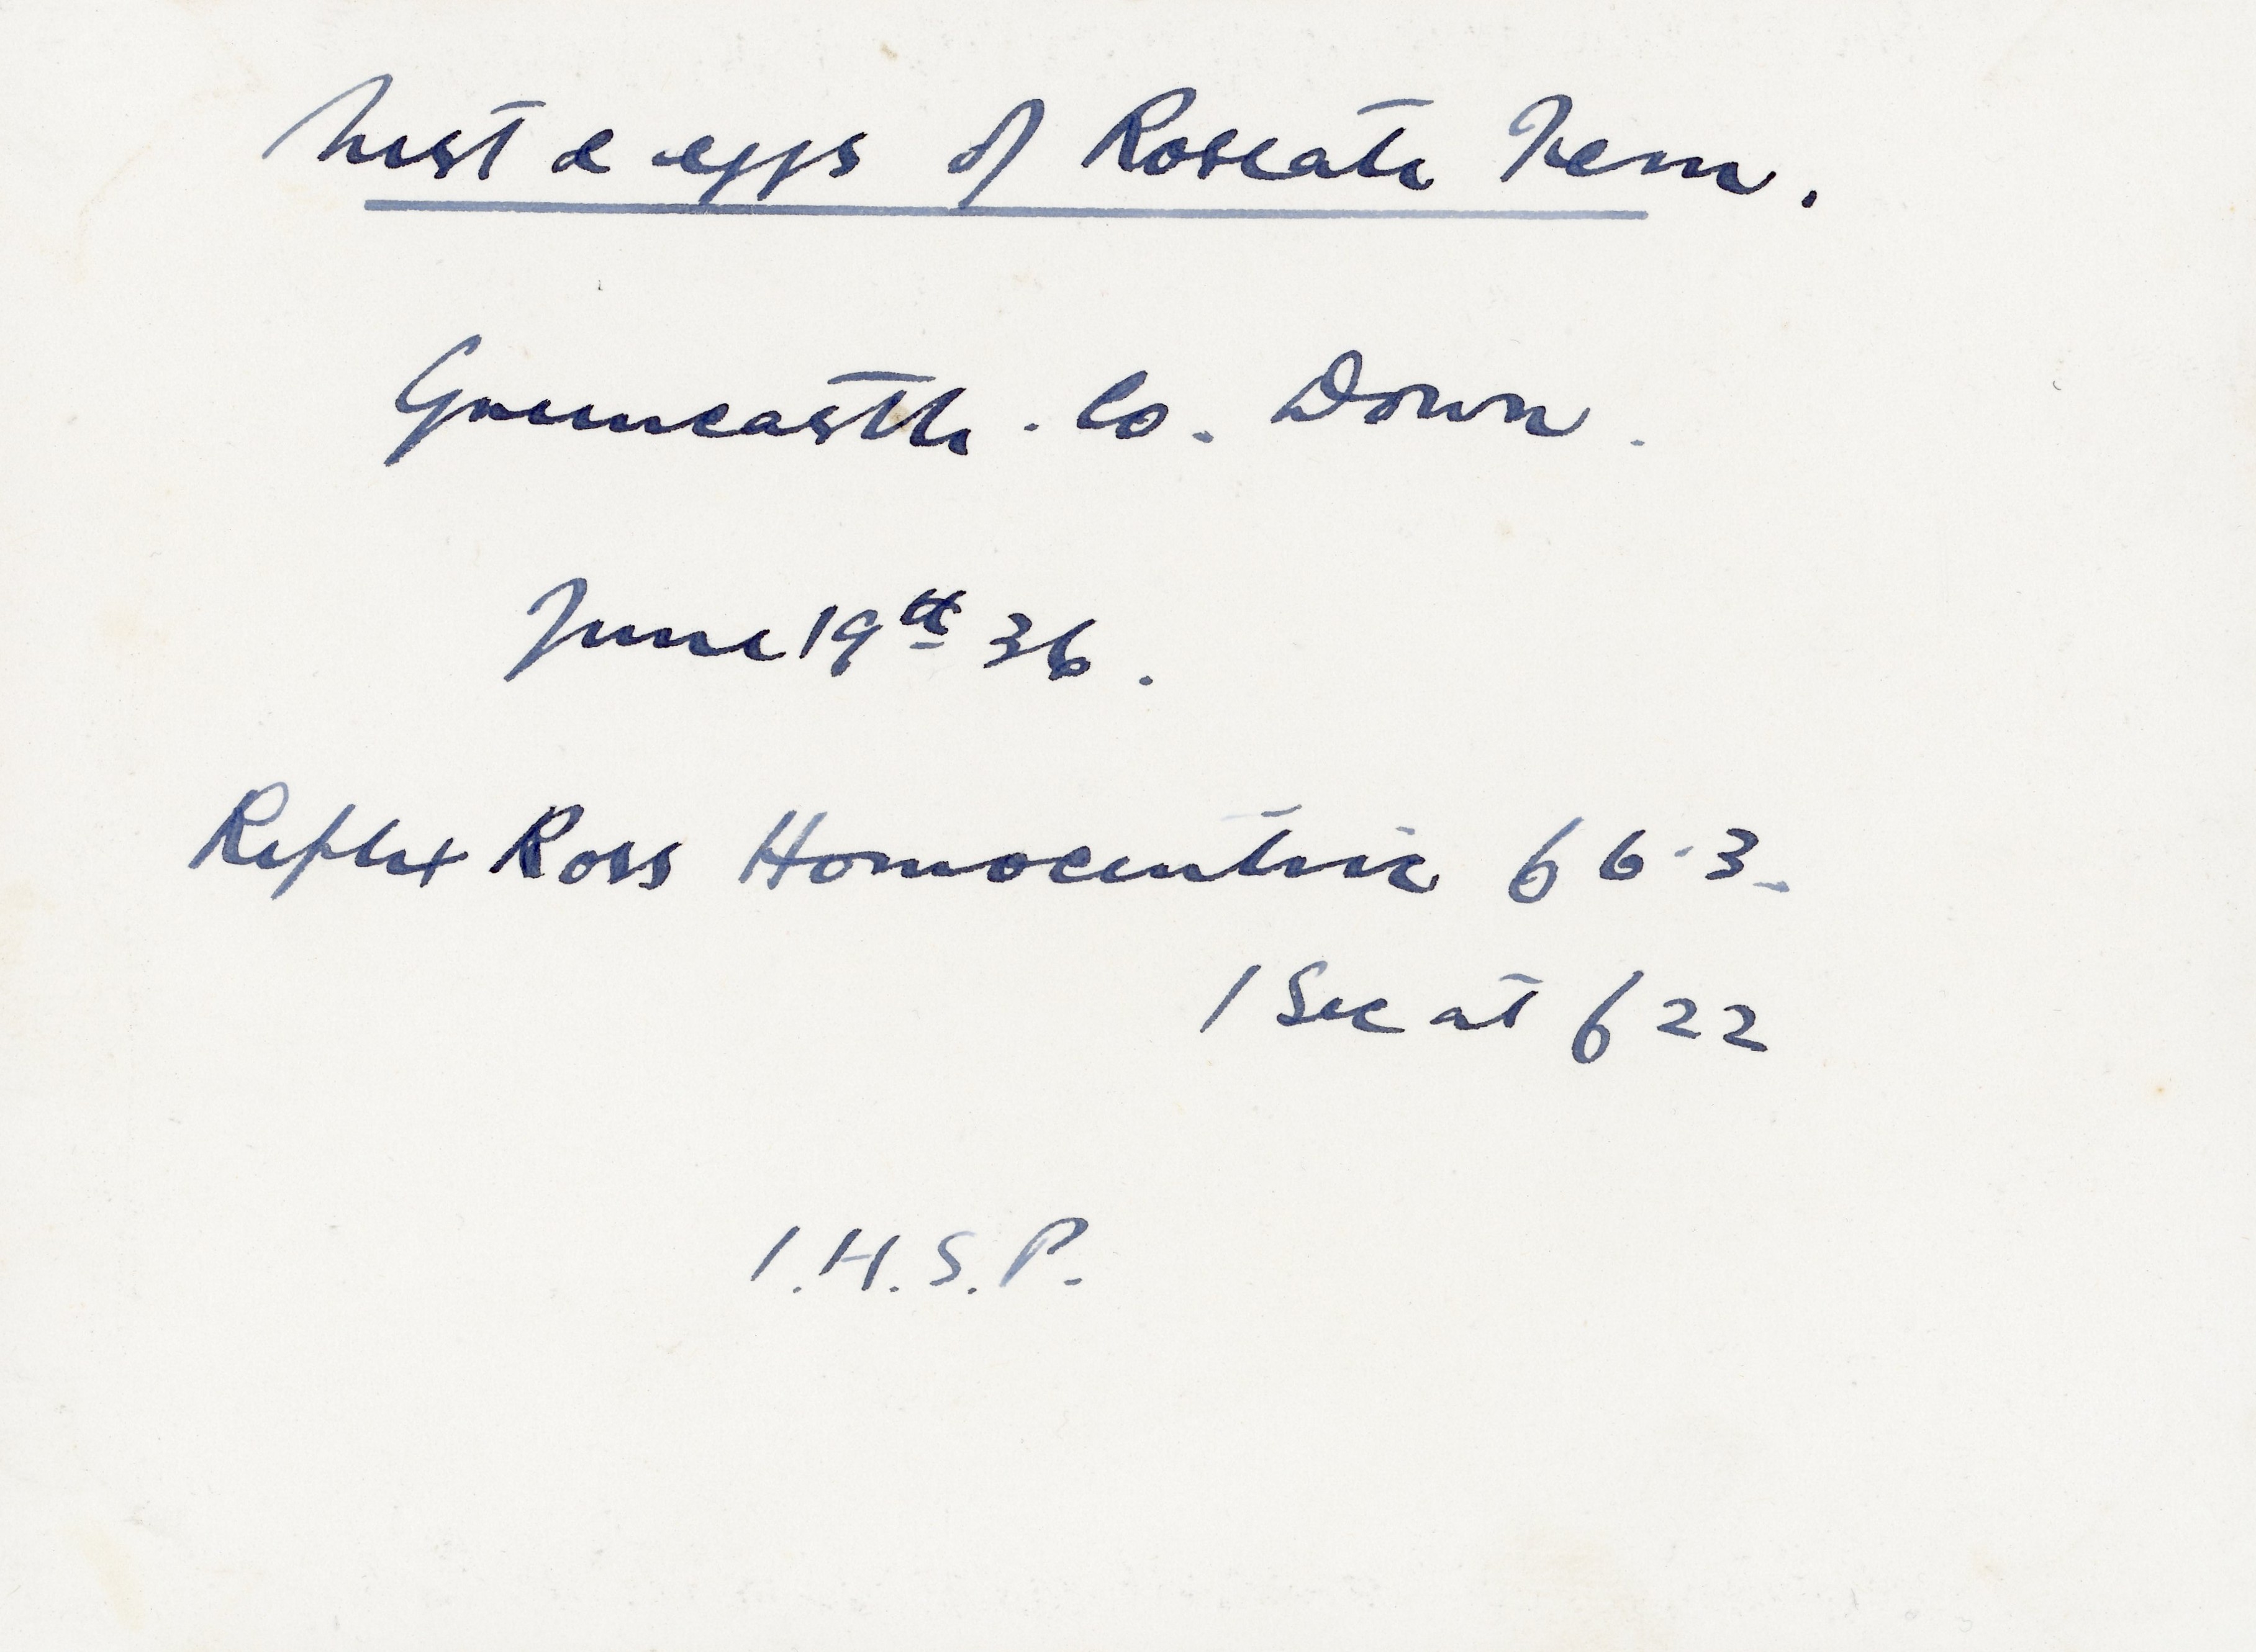 Nest & eggs of Roseate Tern.
Greencastle. Co. Down.
June 19th 36.
Reflex Ross Homocentric f 6.3.
1 Sec at f 22
I.H.S.P.